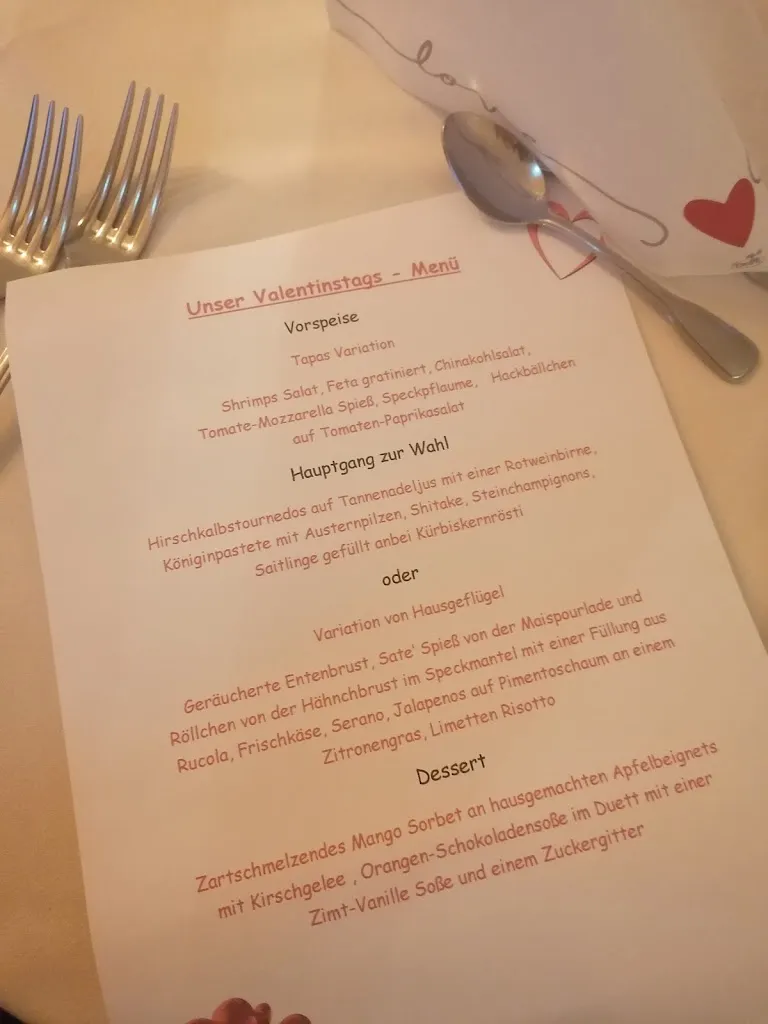 Unser Valentinstags - Menü
Vorspeise
Tapas Variation
Shrimps Salat, Feta gratiniert, Chinakohlsalat,
Tomate-Mozzarella Spieß, Speckpflaume, Hackbällchen
auf Tomaten-Paprikasalat
Hauptgang zur Wahl
Hirschkalbstournedos auf Tannenadeljus mit einer Rotweinbirne,
Königinpastete mit Austernpilzen, Shitake, Steinchampignons,
Saitlinge gefüllt anbei Kürbiskernrösti
oder
Variation von Hausgeflügel
Geräucherte Entenbrust, Sate' Spieß von der Maispourlade und
Röllchen von der Hähnchbrust im Speckmantel mit einer Füllung aus
Rucola, Frischkäse, Serano, Jalapenos auf Pimentoschaum an einem
Zitronengras, Limetten Risotto
Dessert
Zartschmelzendes Mango Sorbet an hausgemachten Apfelbeignets
mit Kirschgelee , Orangen-Schokoladensoße im Duett mit einer
Zimt-Vanille Soße und einem Zuckergitter